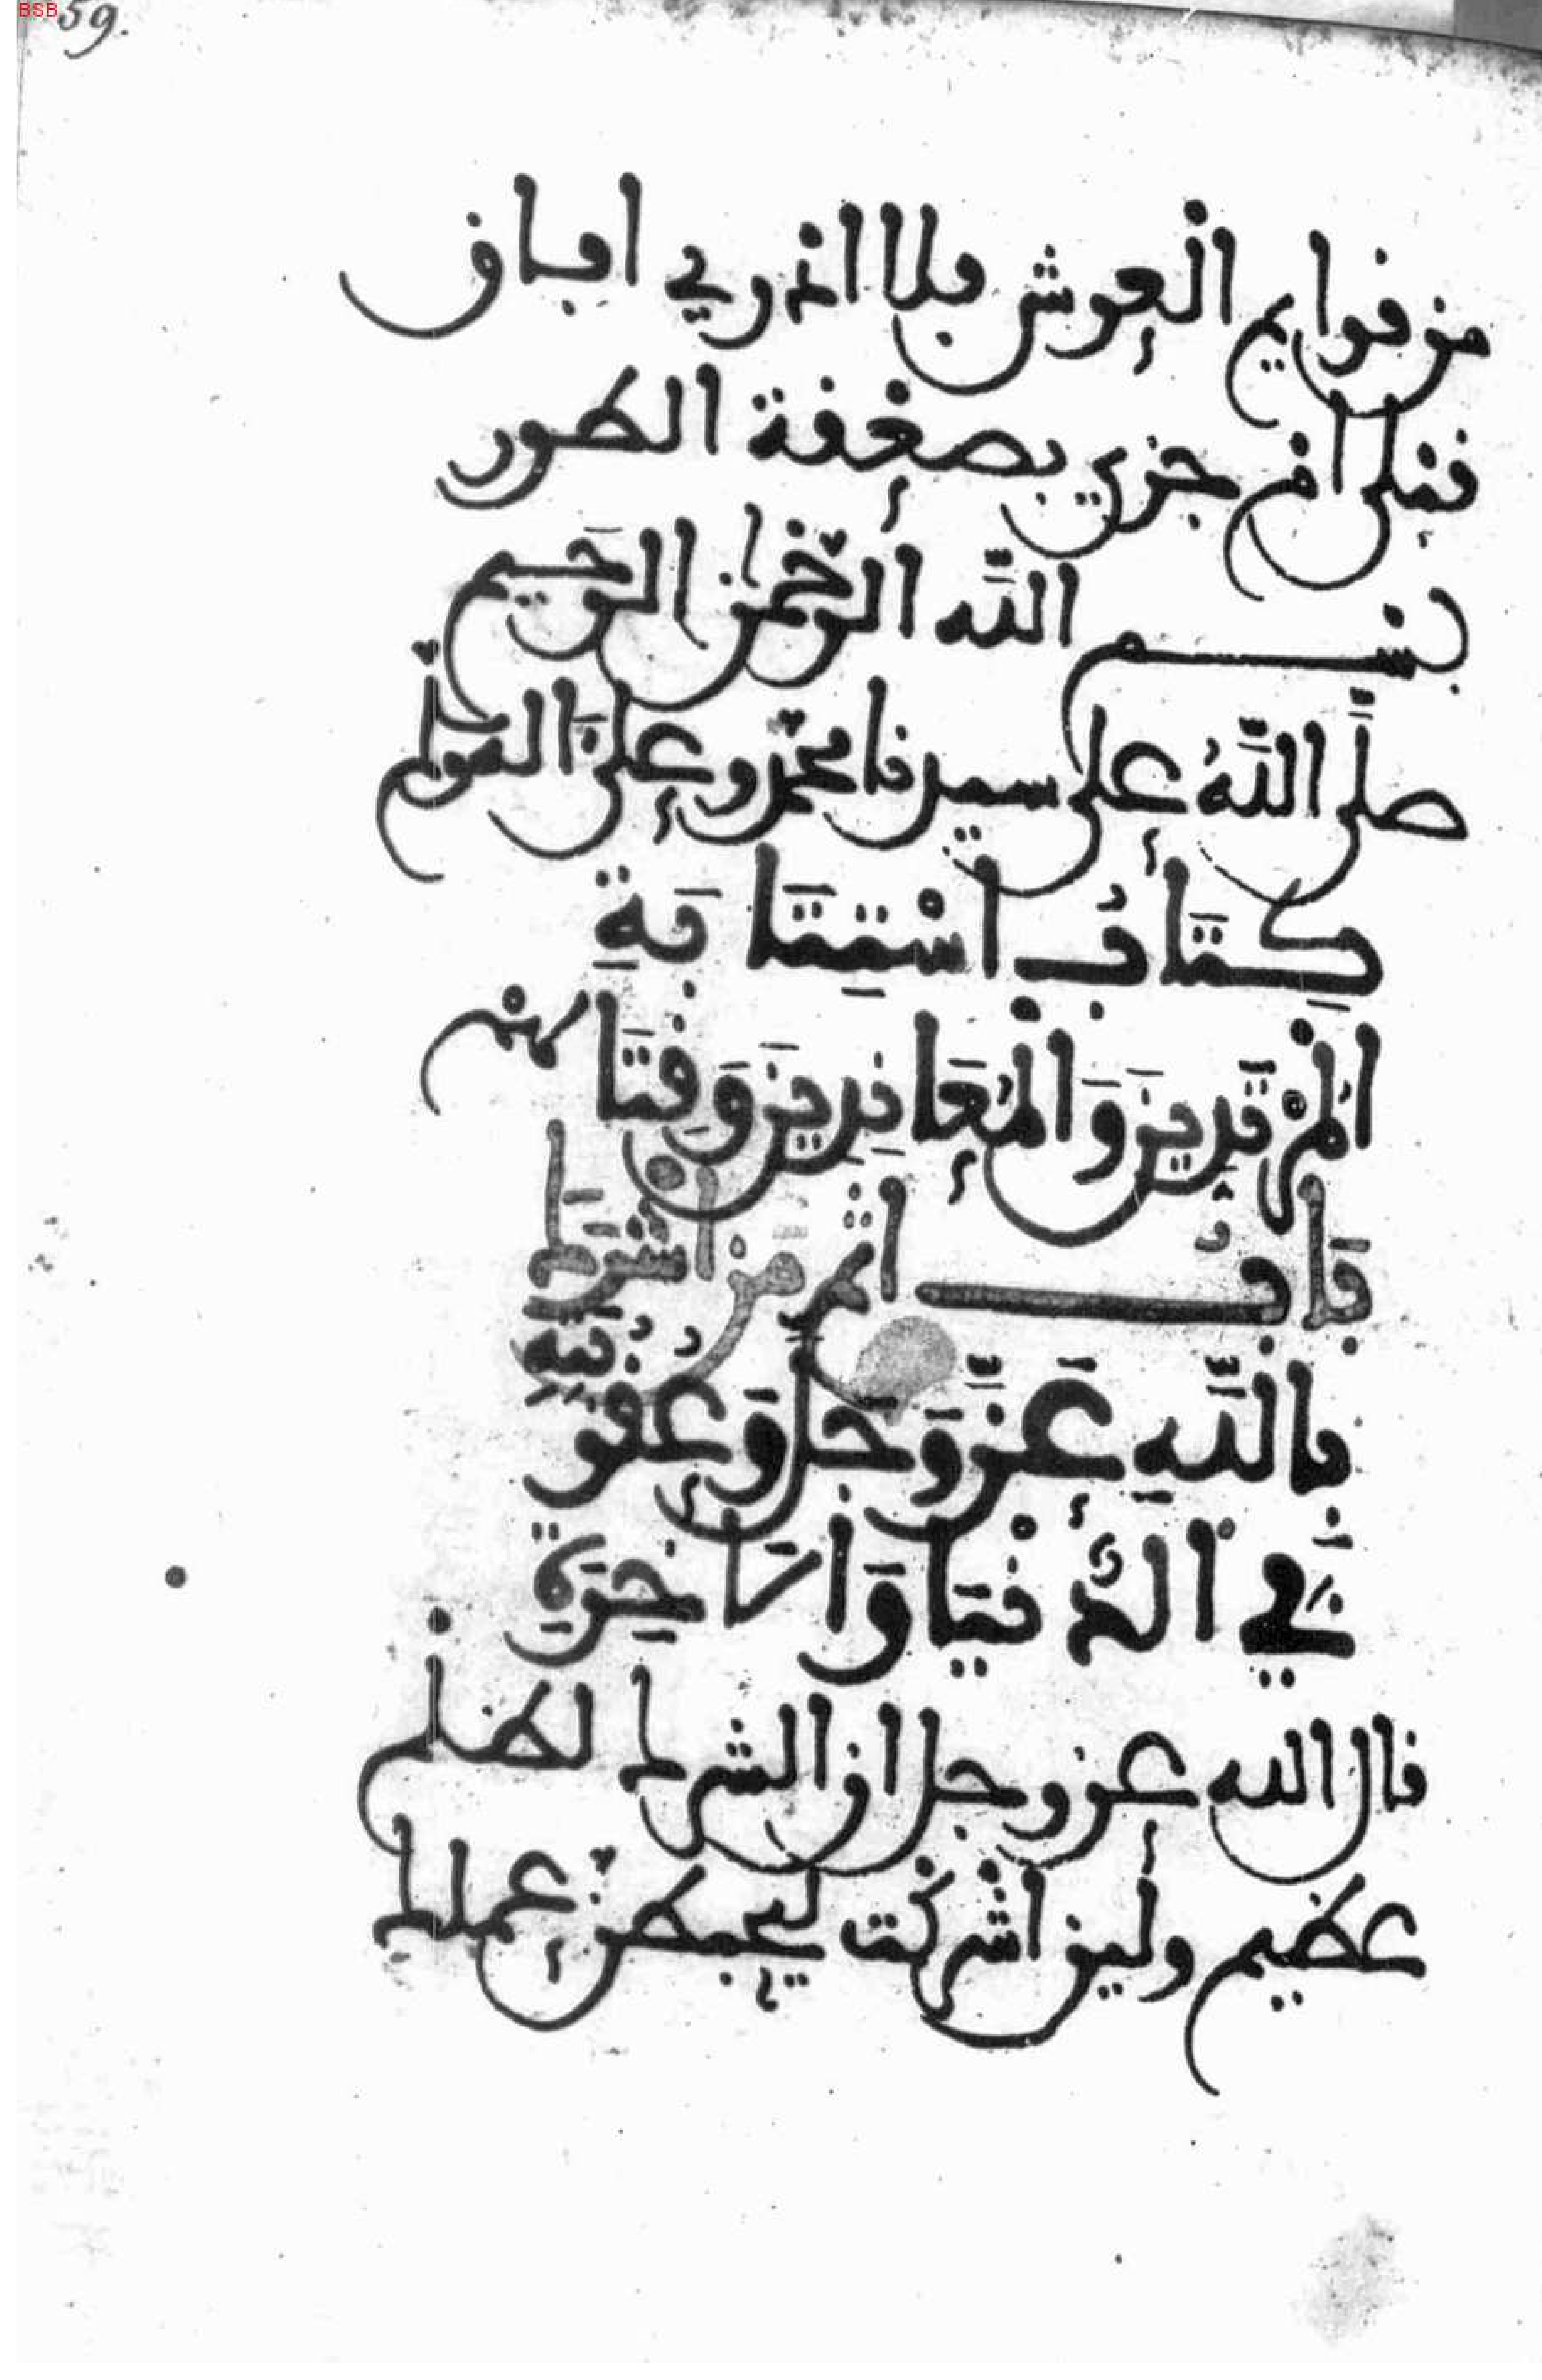 59.
من قوايم العرش فلا ادري افاق
قبلي ام جزي بصعقة الطور
بسم الله الرحمن الرحيم
صلى الله على سيدنا محمد وعلى اله وسلم
كِتَابُ اسْتِتَابَةِ
الْمُرْتَدِينَ وَالْمُعَانِدِينَ وَقِتَالِهِمْ
بَابُ اثْمِ مَنْ اشْرَكَ
بِاللَّهِ عَزَّ وَجَلَّ وَعُقُوبَتِهِ
فِي الدُّنْيَا وَالْآخِرَةِ
قال الله عز وجل ان الشرك لظلم
عظيم ولين اشركت ليحبطن عملك